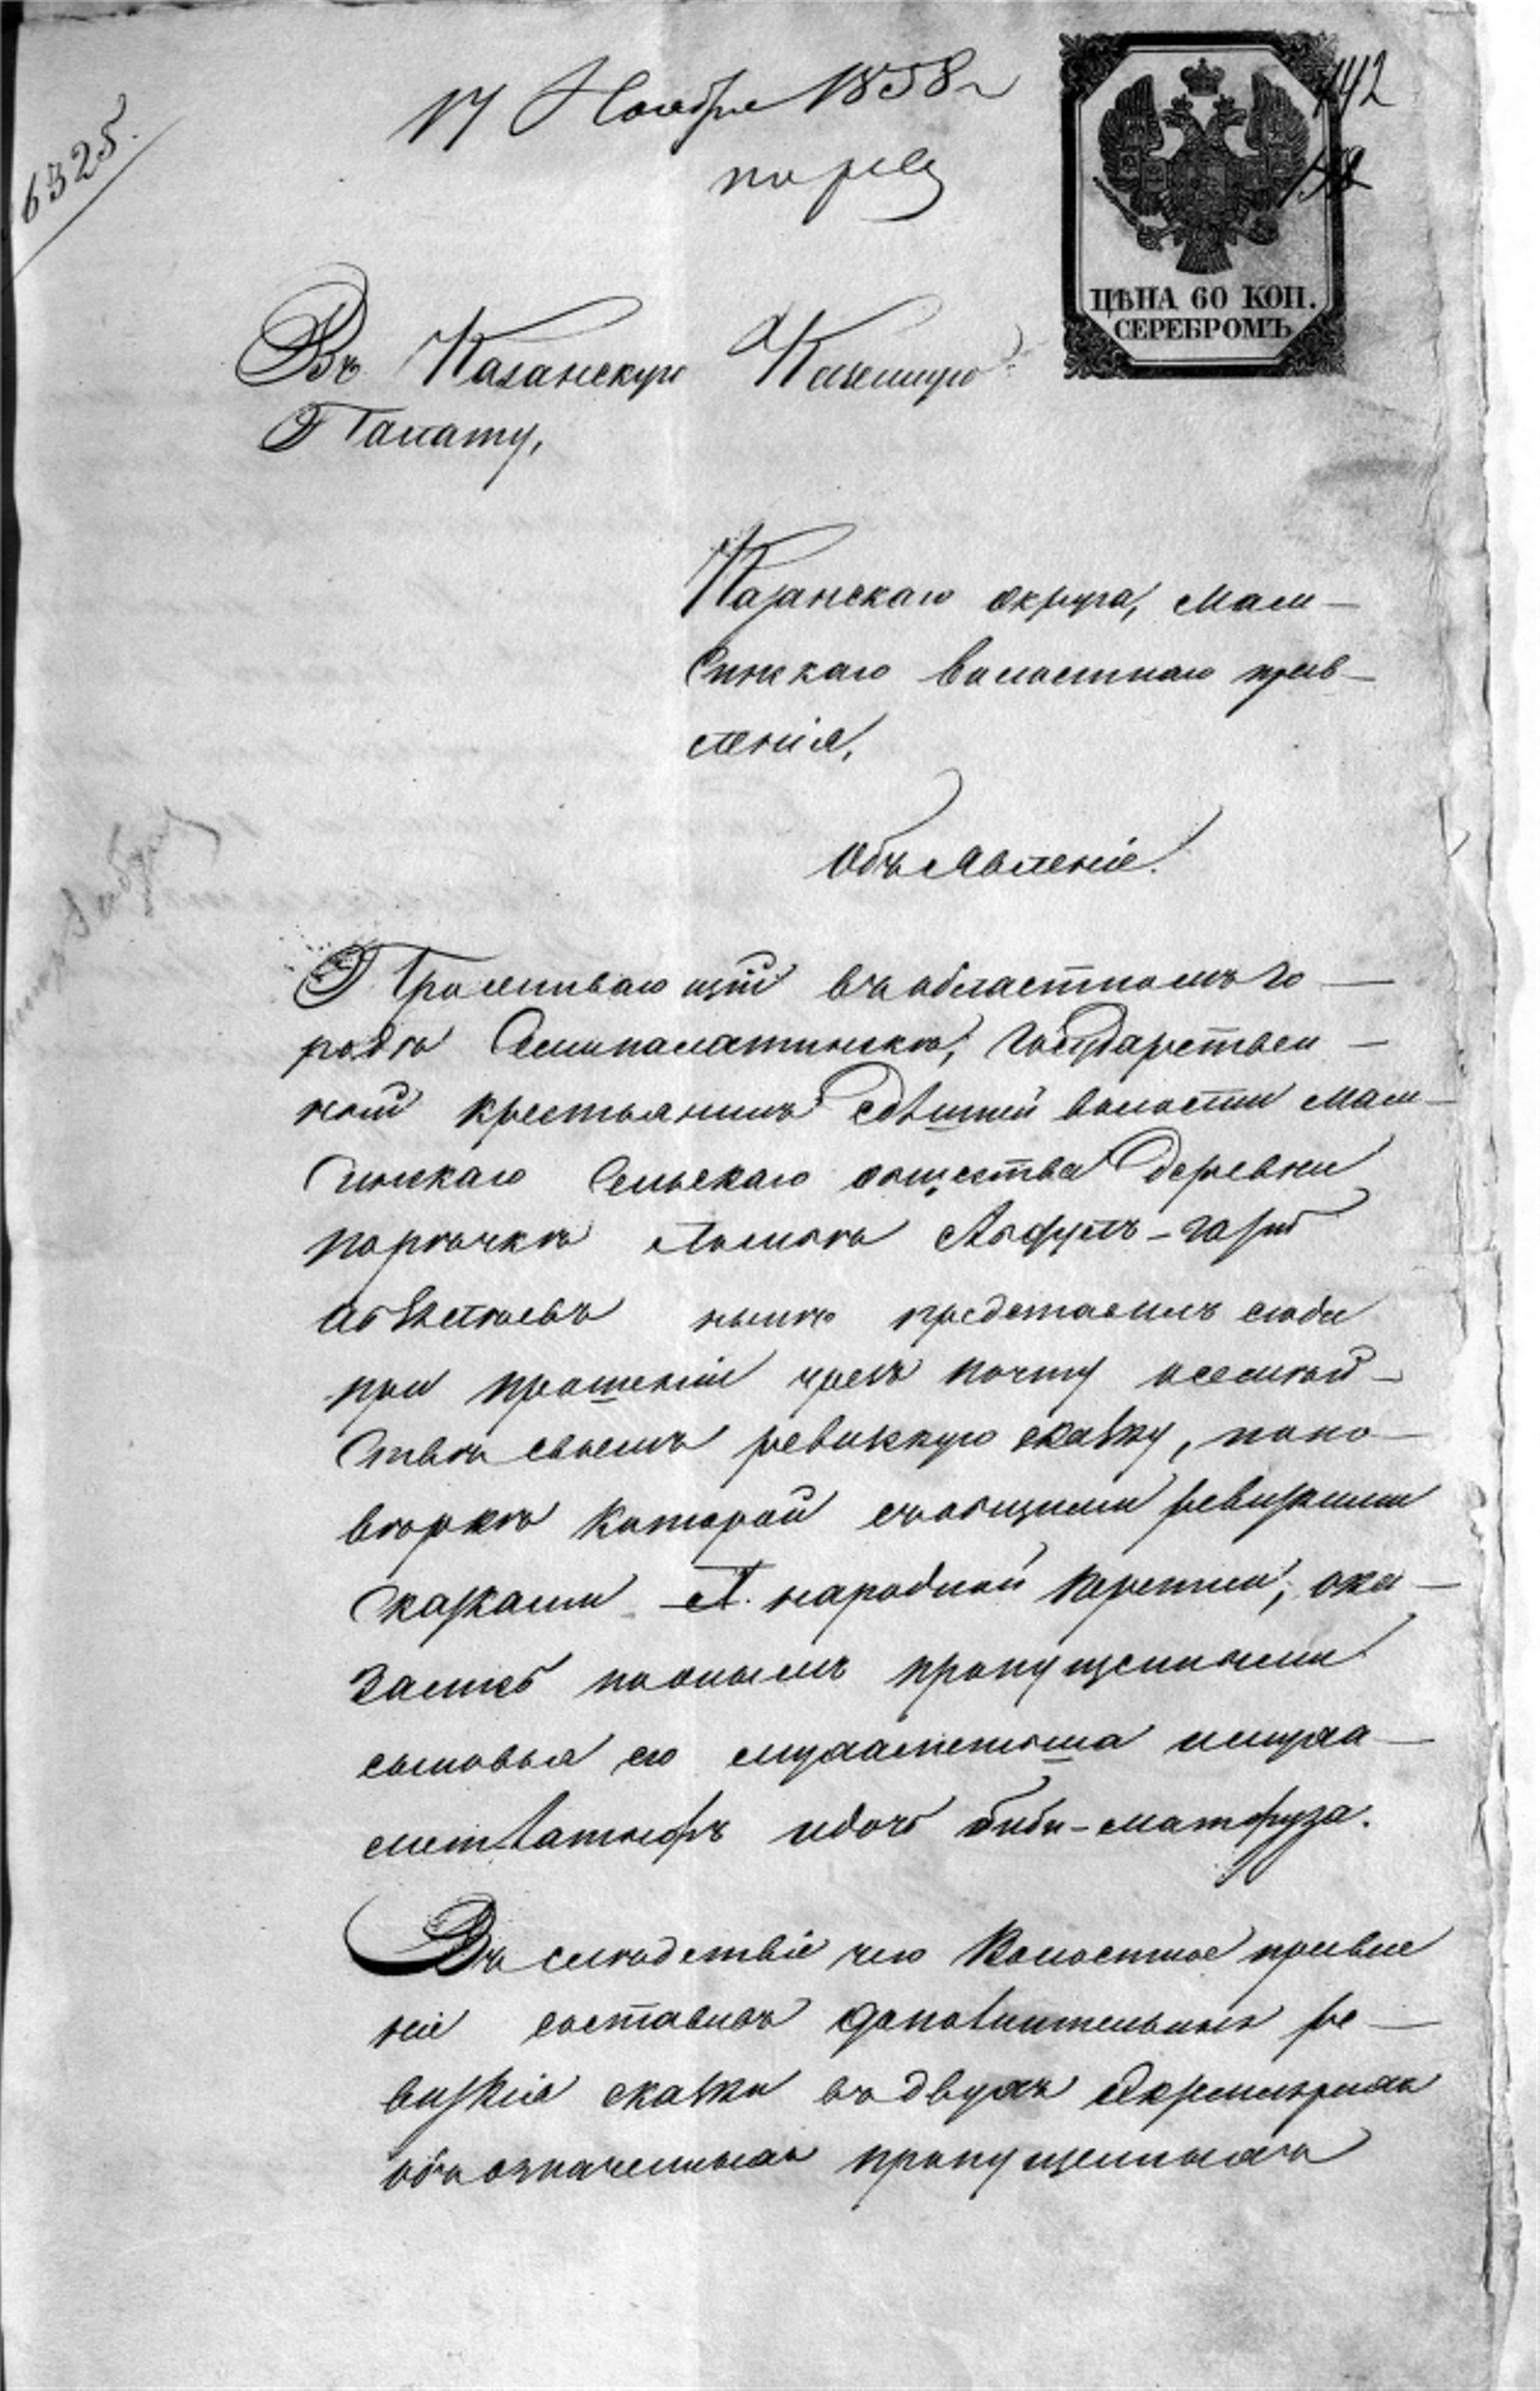 6325.
17 Ноября 1858 г
по рев
142
ЦѢНА 60 КОП.
СЕРЕБРОМЪ
Въ Казанскую Казенную
Палату,
Казанскаго округа, Мам-
синскаго волостнаго прав-
ленія,
Объявленіе.
Проживающій въ областномъ го-
родѣ Семипалатинскѣ, государствен-
ный крестьянинъ здѣшней волости Мам-
синскаго сельскаго общества деревни
Абдулъ-
нынѣ представилъ сюда
при прошеніи чрезъ почту о семей-
ствѣ своемъ ревизкую сказку, по по-
вѣркѣ которой съ общими ревизкими
сказками X. народной переписи, ока-
зались по онымъ пропущенными
сыновья его имуха-
метъ и дочь Биби-
Въ слѣдствіе чего Волостное правле
ніе составивъ дополнительныя ре-
визкія сказки въ двухъ экземплярахъ
объ означенныхъ пропущенныхъ